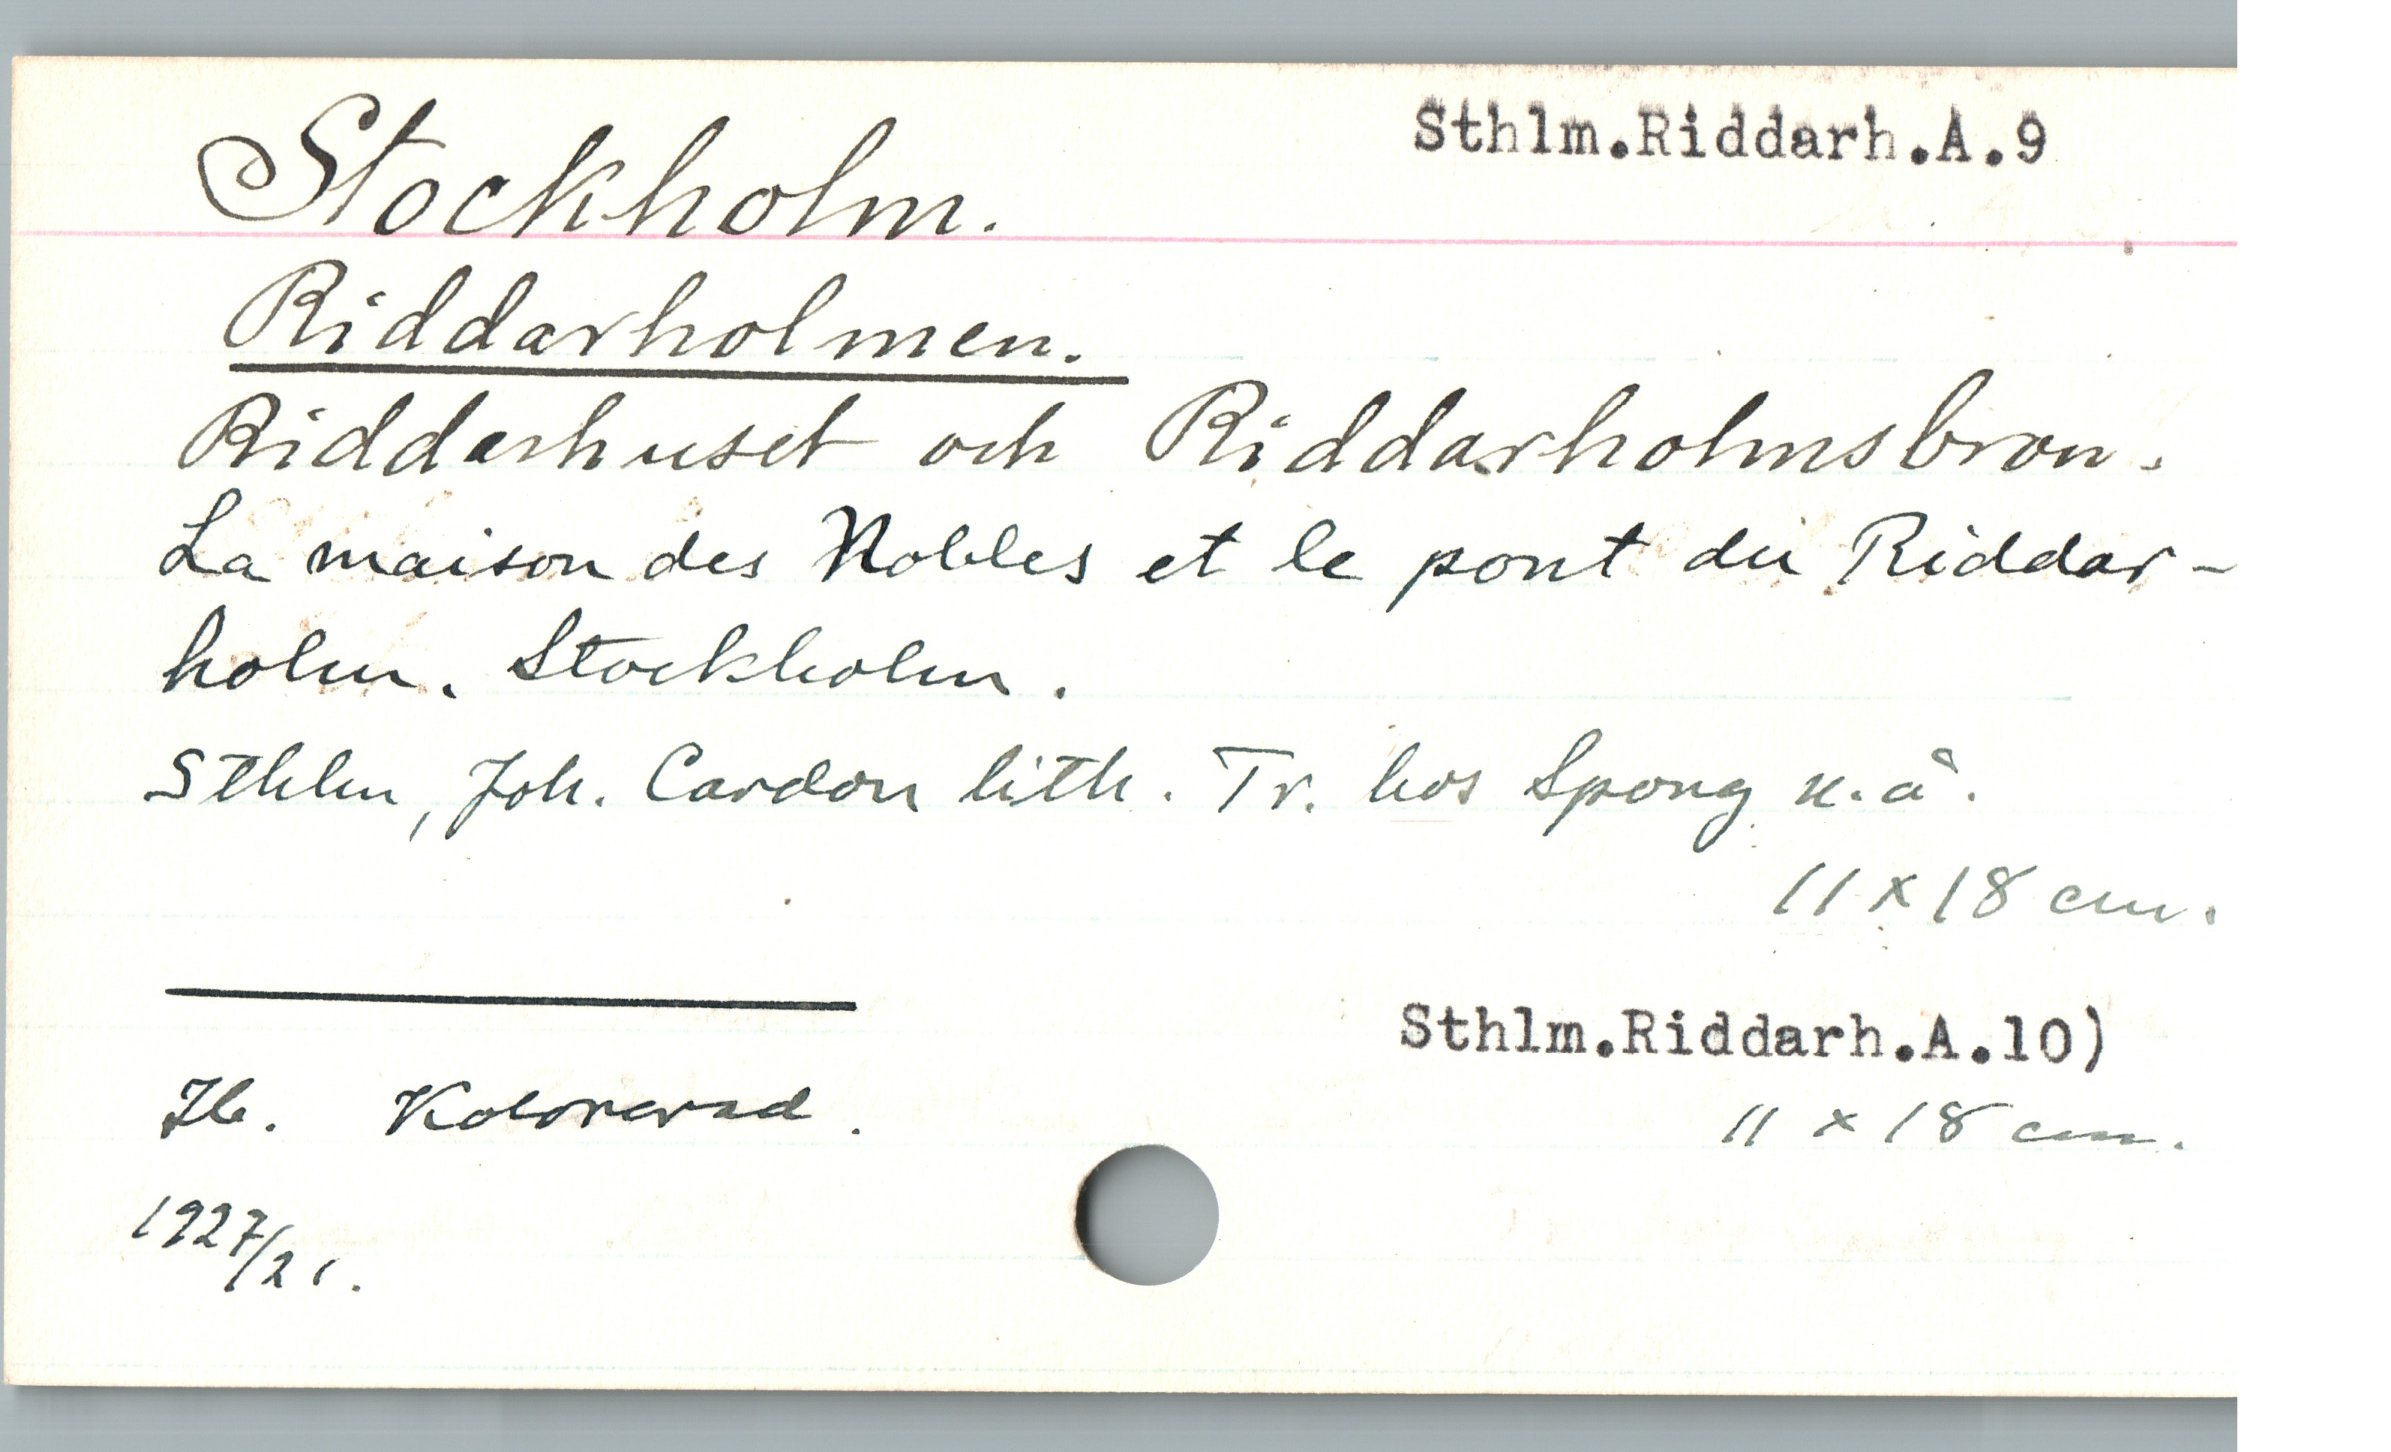 Stockholm. Sthlm.Riddarh.A.9
Riddarholmen.
Riddarhuset och Riddarholmsbron.
La maison des Nobles et le pont du Riddar-
holm. Stockholm.
Sthlm, Joh. Cardon lith. Tr. hos Spong u.å.
11 x 18 cm.
Sthlm.Riddarh.A.10)
Ib. Kolorerad.
11 x 18 cm.
1927/21.